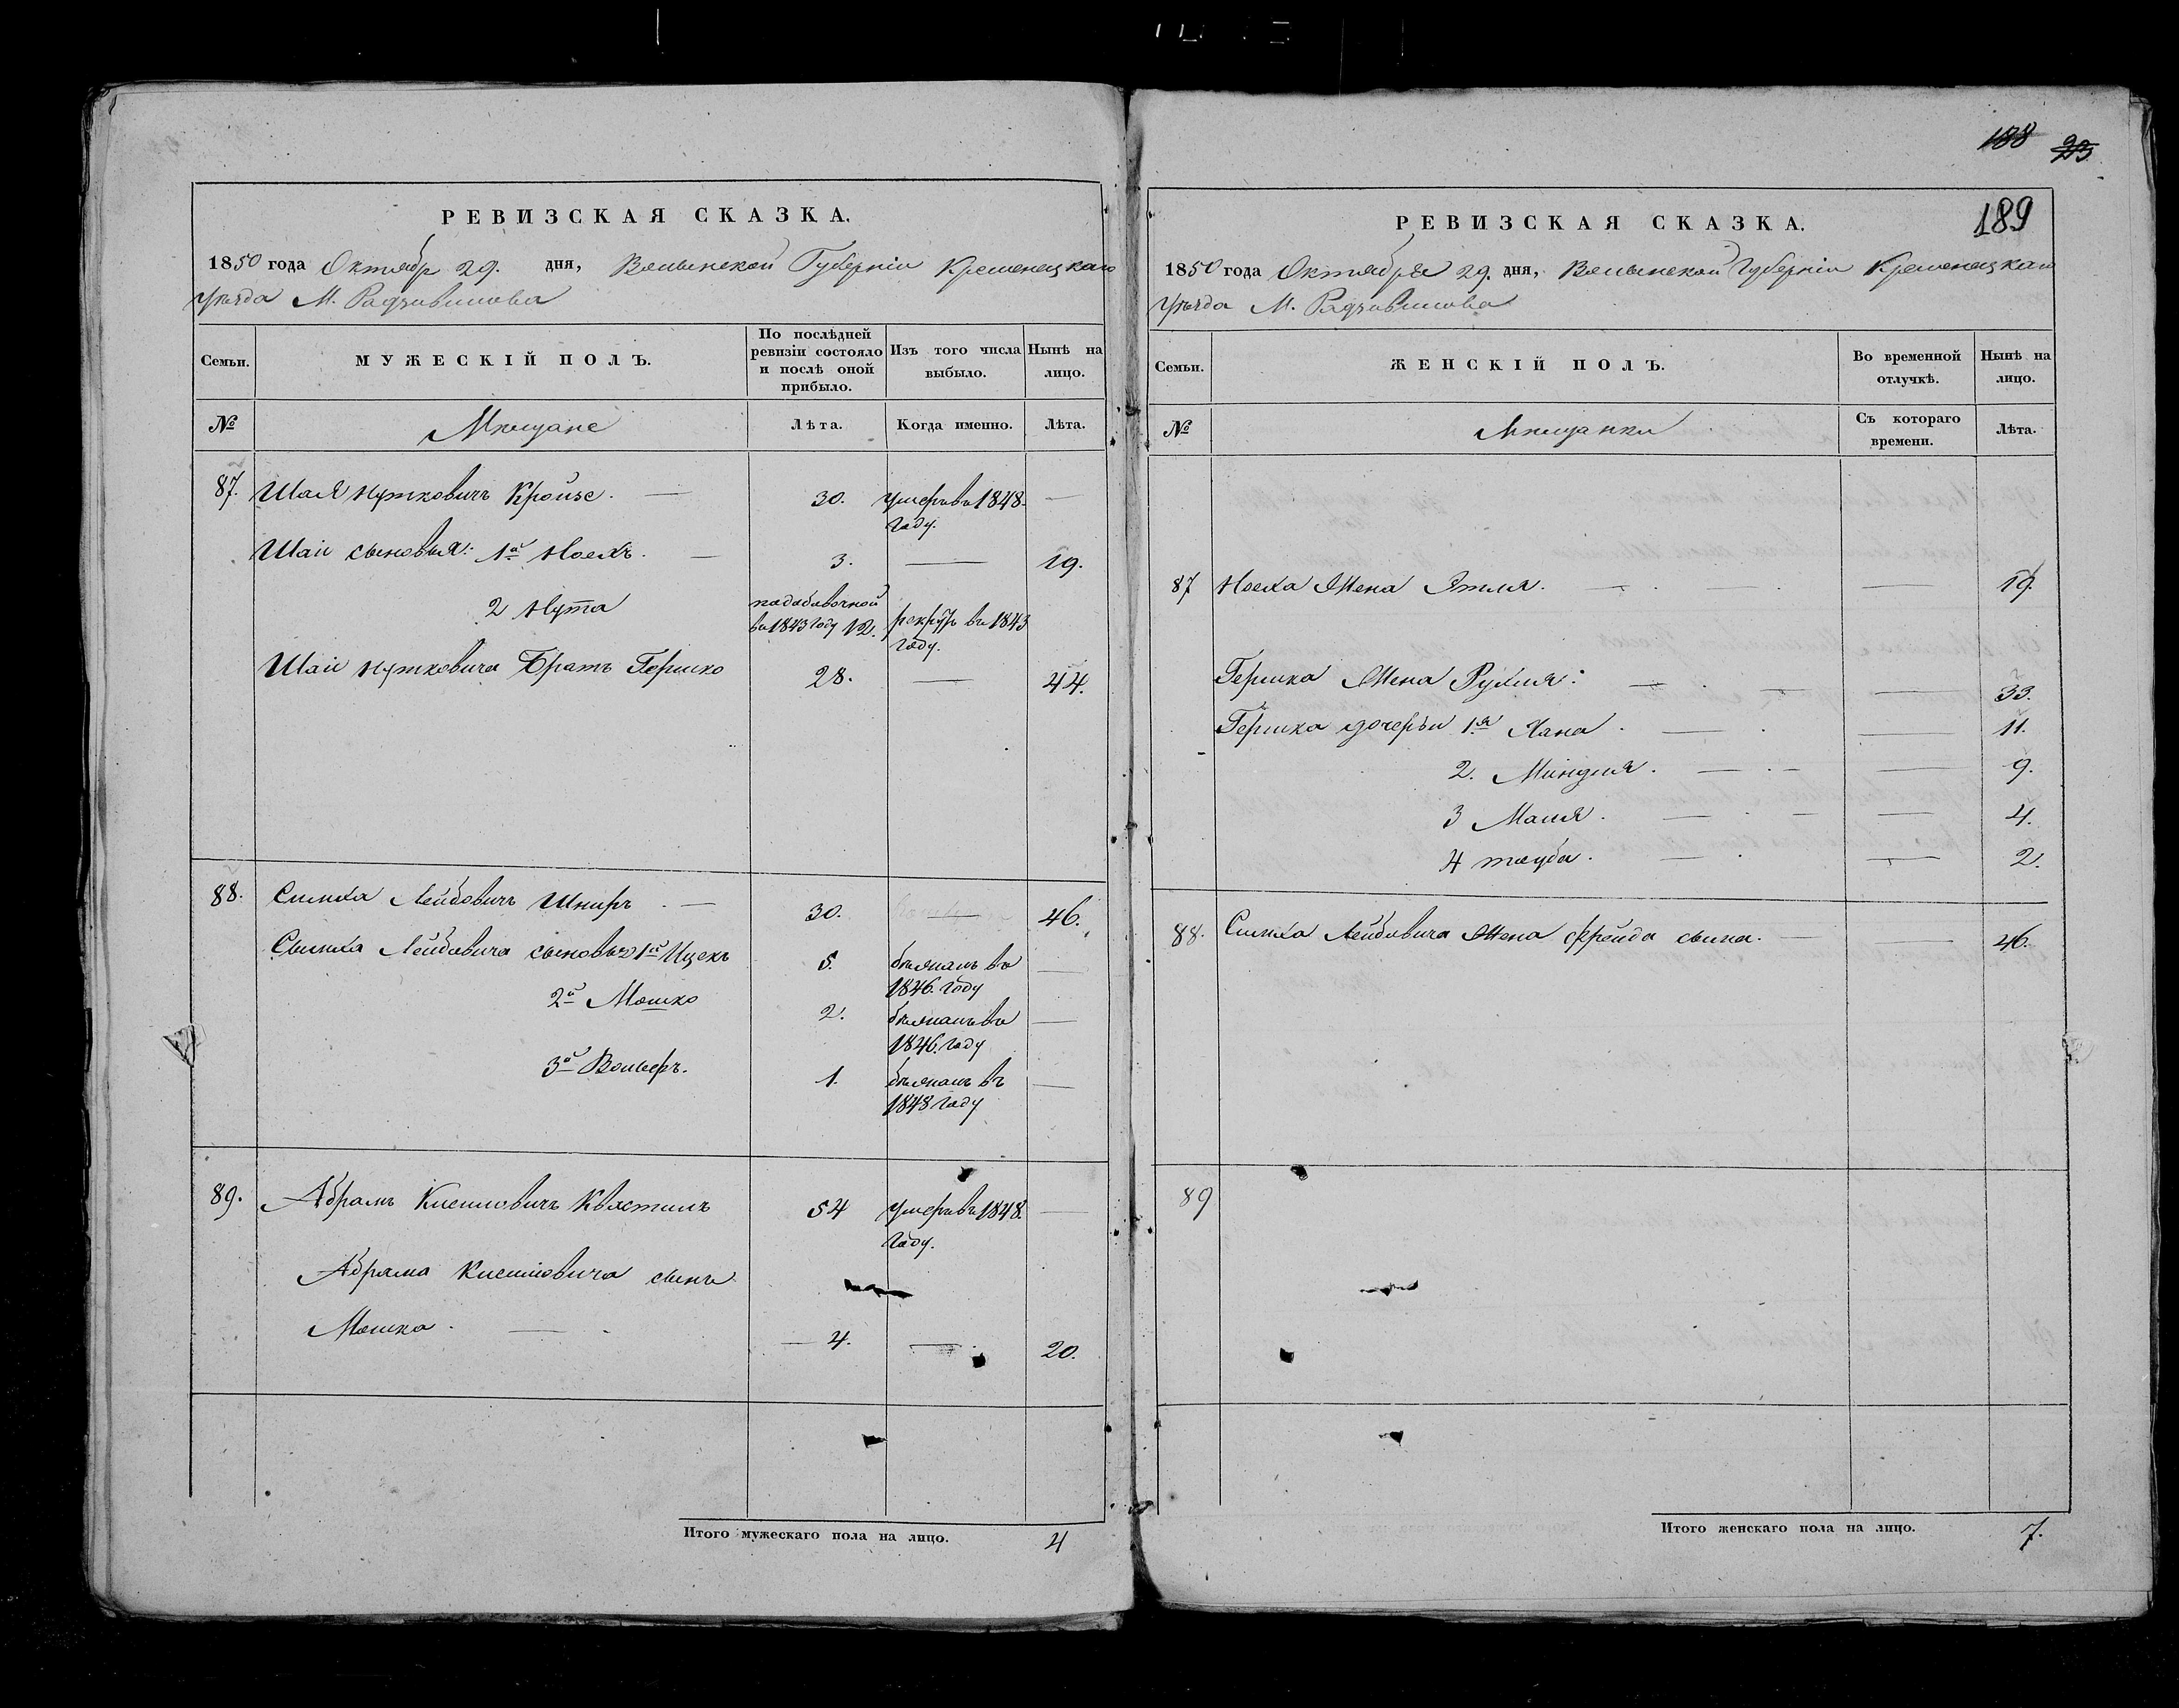 РЕВИЗСКАЯ СКАЗКА.
1850 года Октябр 29. дня, Волынской Губерніи Кременецкаго
уѣзда М. Радзивилова
Семьи.
МУЖЕСКІЙ ПОЛЪ.
По послѣдней ревизіи состояло и послѣ оной прибыло.
Изъ того числа выбыло.
Нынѣ на лицо.
№
Мѣщане
Лѣта.
Когда именно.
Лѣта.
87. Шая Нутковичъ Кройзе. — 30. умеръ въ 1848. году. —
Шаи сыновья: 1й Ноехъ. — 3. — 19.
2 Нута подобавочной въ 1843 году 12. рекрутъ въ 1843 году.
Шаи Нутковича Братъ Гершко 28. — 44.
88. Симха Лейбовичъ Шниръ. — 30. — 46.
Сымха Лейбовича сыновья 1й Ицекъ 5. бѣжалъ въ 1846. году —
2й Мошко 2. бѣжалъ въ 1846. году —
3й Вольфъ. 1. бѣжалъ въ 1848 году —
89. Абрамъ Кисилювичъ 54 умеръ въ 1848. году. —
Абрама Кисилювича сынъ
Мошко. — 4. — 20.
Итого мужескаго пола на лицо. 4
188 213
189
РЕВИЗСКАЯ СКАЗКА.
1850 года Октября 29. дня, Волынской Губерніи Кременецкаго
уѣзда М. Радзивилова
Семьи.
ЖЕНСКІЙ ПОЛЪ.
Во временной отлучкѣ.
Нынѣ на лицо.
№
Мѣщанки
Съ котораго времени.
Лѣта.
87 Ноеха Жена Этля. — — 19.
Гершка Жена Рухля: — — 33.
Гершка дочерьи 1я Хана. — — 11.
2. Миндля. — — 9.
3 Маля. — — 4.
4 тауба. — — 2.
88. Симха Лейбовича Жена Фрейда сыма. — — 46.
89
Итого женскаго пола на лицо. 7.